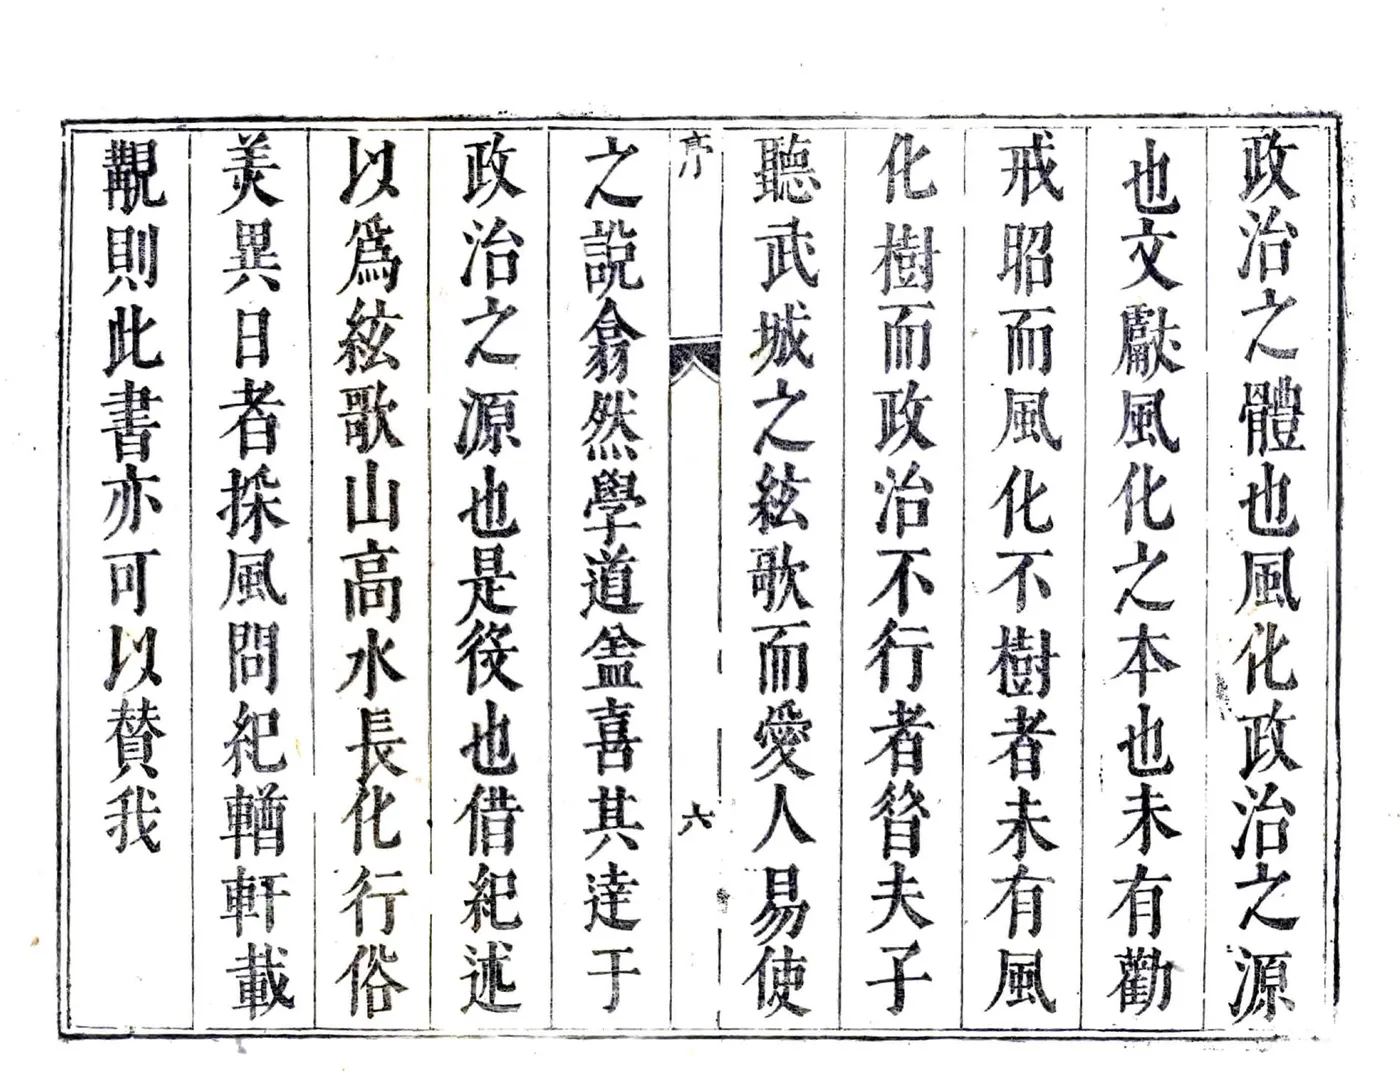 政治之體也風化政治之源
也文獻風化之本也未有勸
戒昭而風化不樹者未有風
化樹而政治不行者昝夫子
聽武城之絃歌而愛人易使
序
六
之說翕然學道盒喜其達于
政治之源也是役也借紀述
以爲絃歌山高水長化行俗
美異日者採風問紀輶軒載
覩則此書亦可以贊我